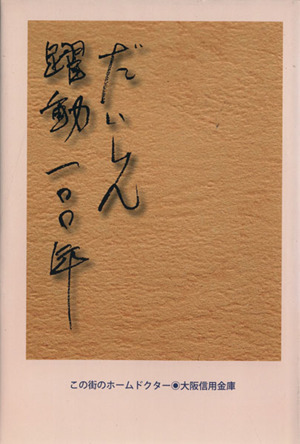 だいしん
躍動一〇〇年
この街のホームドクター◉大阪信用金庫